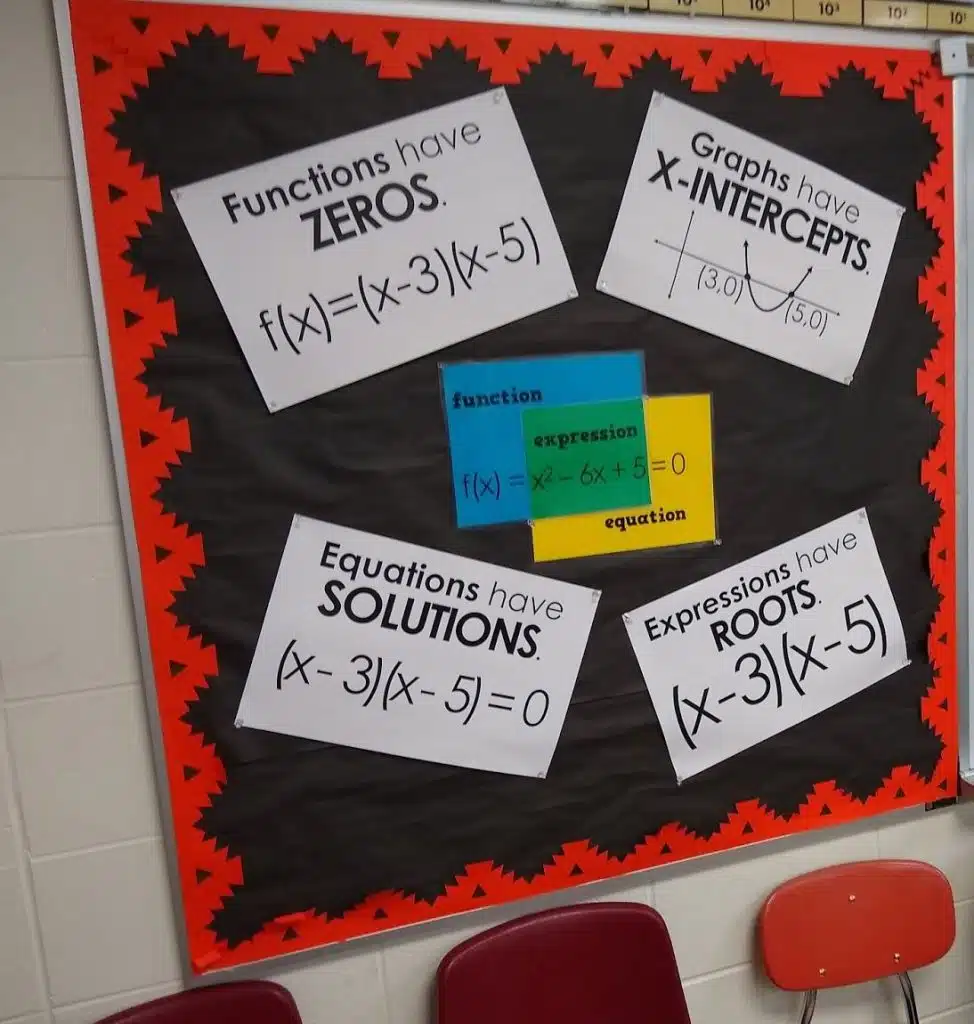 10⁴ 10³ 10² 10¹
Functions have
ZEROS.
f(x)=(x-3)(x-5)
Graphs have
X-INTERCEPTS.
(3,0)
(5,0)
function
expression
f(x) = x² - 6x + 5 = 0
equation
Equations have
SOLUTIONS.
(x-3)(x-5)=0
Expressions have
ROOTS.
(x-3)(x-5)